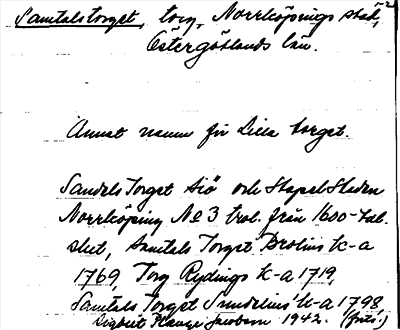 Samtalstorget, torg, Norrköpings stad,
Östergötlands län.
Annat namn för Lilla torget.
Samtels Torget Siö och Stapel Staden
Norrköping No 3 trol. från 1600-tal.
slut, Samtals Torget Brolins k-a
1769, Torg Rydings k-a 1719,
Samtals Torget Sundelius k-a 1798,
Jacobson 1942. (förts.)